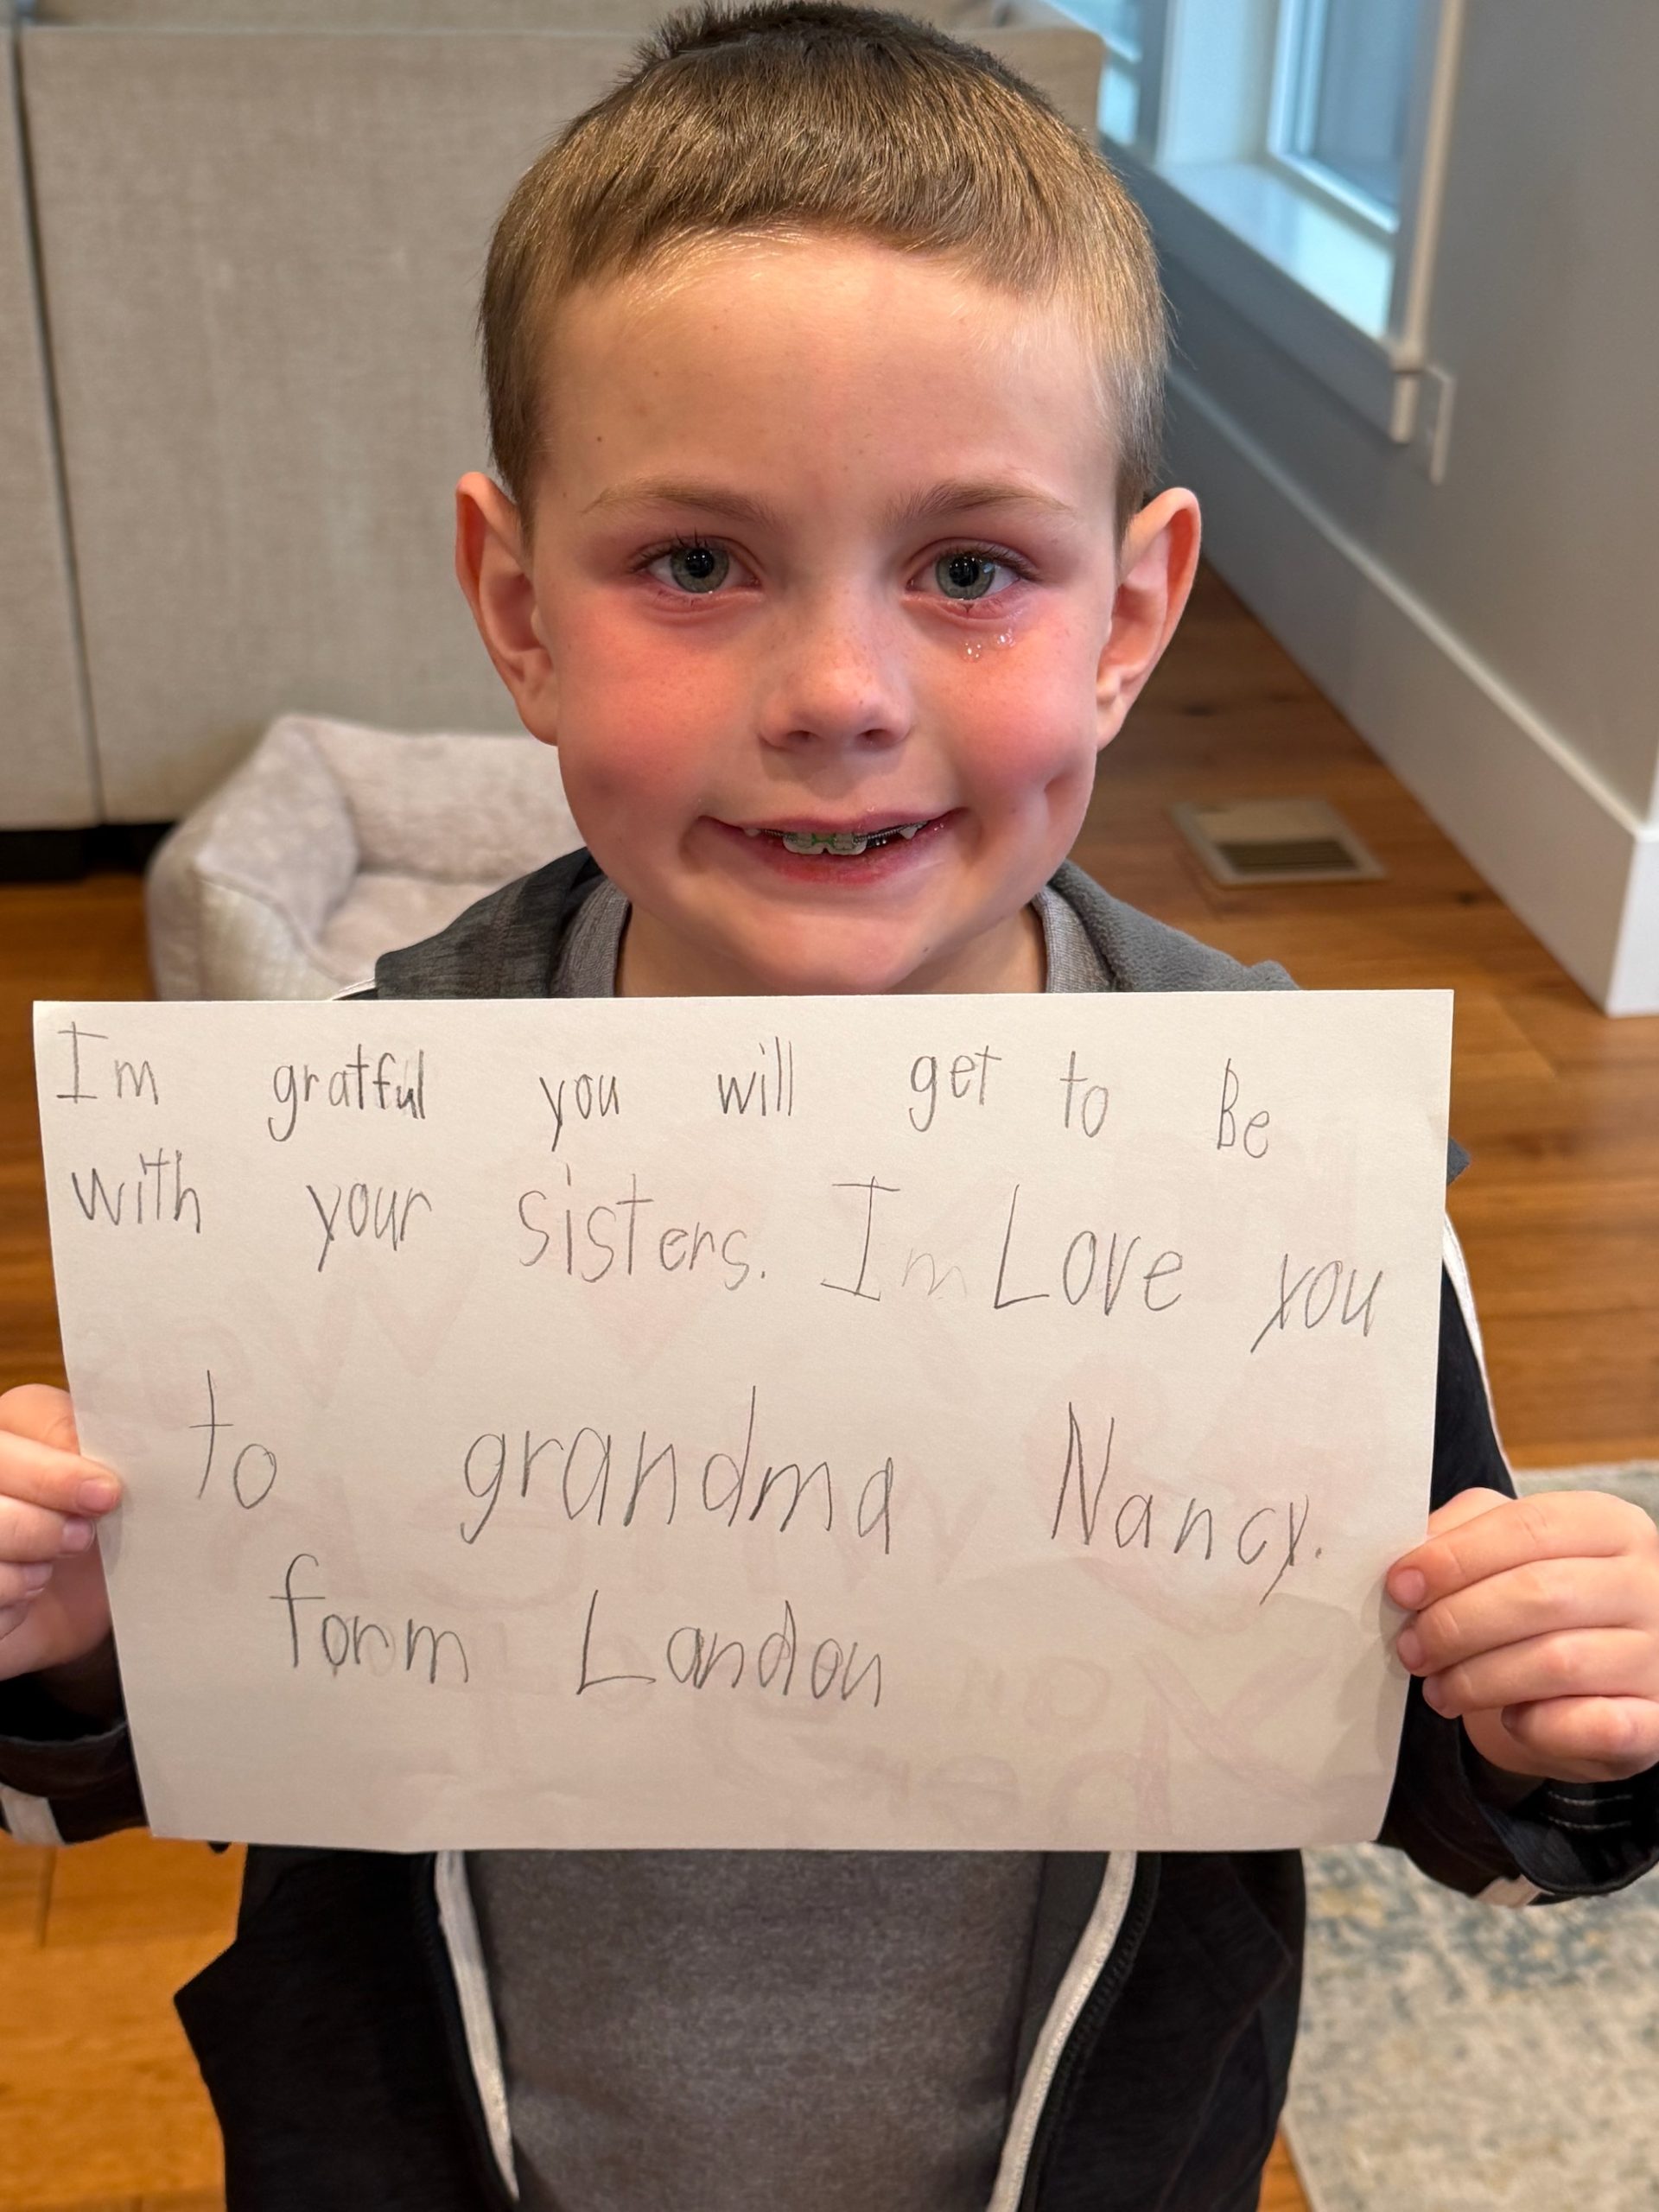 Im gratful you will get to Be
with your sisters. Im Love you
to grandma Nancy.
form Landon